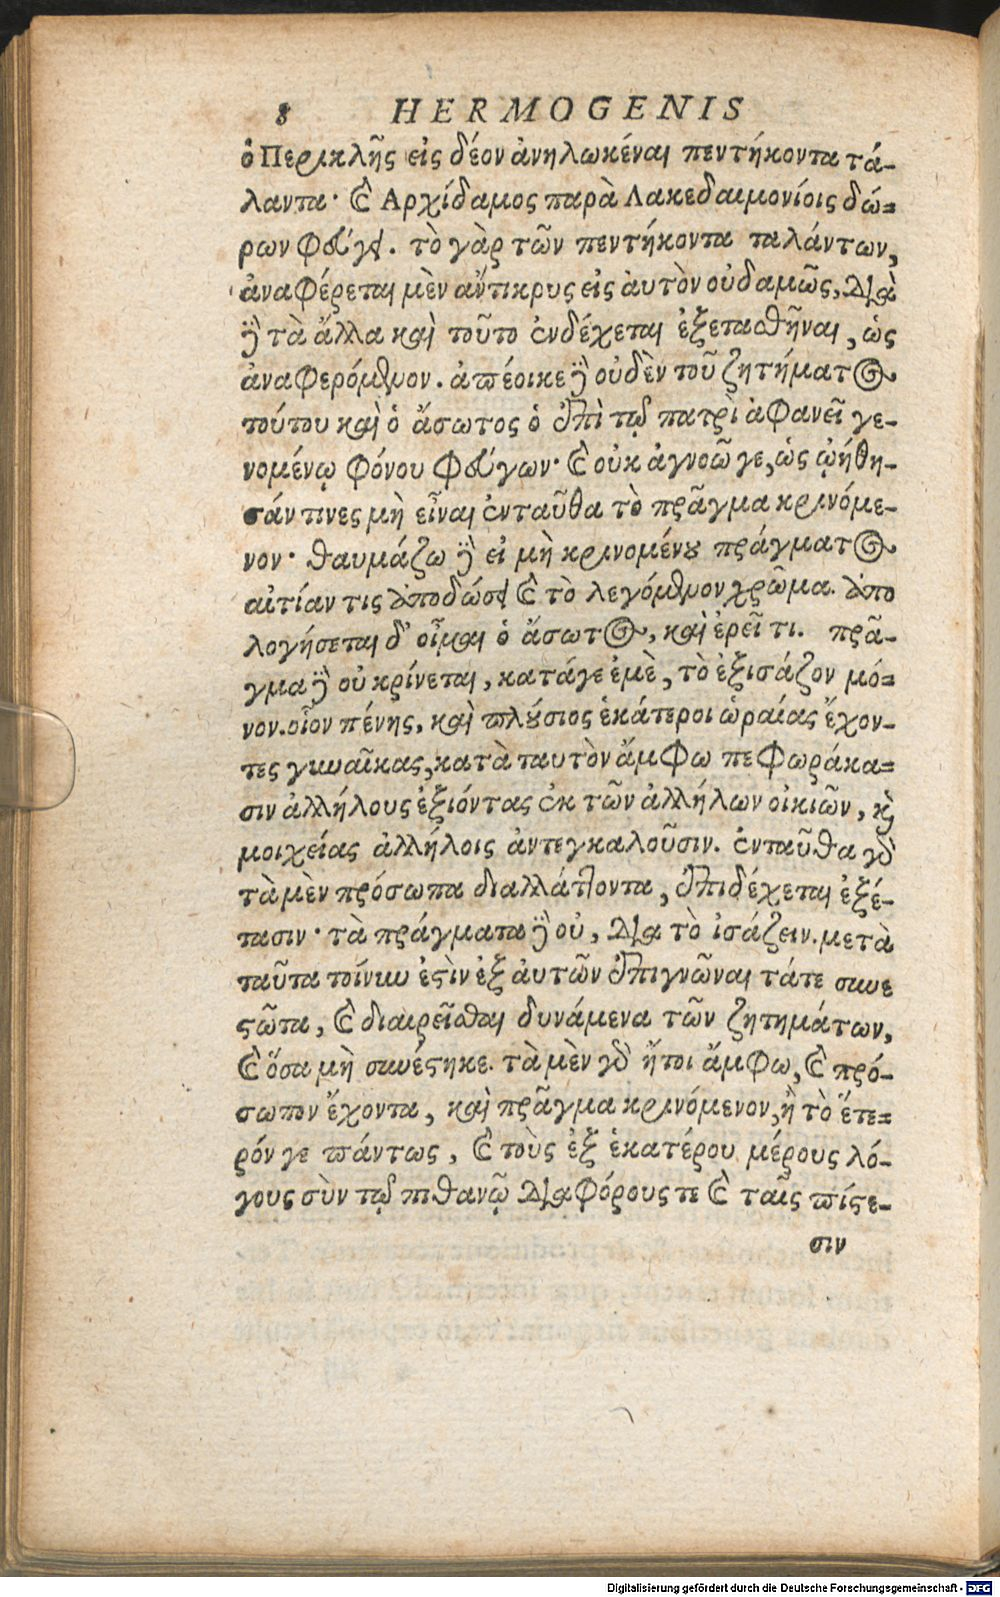 8 HERMOGENIS
ὁ Περικλῆς εἰς δέον ἀνηλωκέναι πεντήκοντα τά-
λαντα· καὶ Ἀρχίδαμος παρὰ Λακεδαιμονίοις δώ-
ρων φεύγει. τὸ γὰρ τῶν πεντήκοντα ταλάντων,
ἀναφέρεται μὲν ἄντικρυς εἰς ἀυτὸν οὐδαμῶς, διὰ
δὲ τὰ ἄλλα καὶ τοῦτο ἐνδέχεται ἐξετασθῆναι, ὡς
ἀναφερόμενον. ἀπέοικε δὲ οὐδὲν τοῦ ζητήματος
τούτου καὶ ὁ ἄσωτος ὁ ἐπὶ τῷ πατρὶ ἀφανεῖ γε-
νομένῳ φόνου φεύγων· καὶ οὐκ ἀγνοῶ γε, ὡς ᾠήθη-
σάν τινες μὴ εἶναι ἐνταῦθα τὸ πρᾶγμα κρινόμε-
νον· θαυμάζω δὲ εἰ μὴ κρινομένου πράγματος
αἰτίαν τις ἀποδώσει καὶ τὸ λεγόμενον χρῶμα. ἀπο
λογήσεται δ' οἶμαι ὁ ἄσωτος, καὶ ἐρεῖ τι. πρᾶ-
γμα δὲ οὐ κρίνεται, κατάγε ἐμὲ, τὸ ἐξισάζον μό-
νον. οἷον πένης, καὶ πλούσιος ἑκάτεροι ὡραίας ἔχον-
τες γυναῖκας, κατὰ ταυτὸν ἄμφω πεφωράκα-
σιν ἀλλήλους ἐξιόντας ἐκ τῶν ἀλλήλων οἰκιῶν, καὶ
μοιχείας ἀλλήλοις ἀντεγκαλοῦσιν. ἐνταῦθα γὰρ
τὰ μὲν πρόσωπα διαλλάττοντα, ἐπιδέχεται ἐξέ-
τασιν· τὰ πράγματα δὲ οὐ, διὰ τὸ ἰσάζειν. μετὰ
ταῦτα τοίνυν ἐστὶν ἐξ ἀυτῶν ἐπιγνῶναι τάτε συνε
στῶτα, καὶ διαιρεῖσθαι δυνάμενα τῶν ζητημάτων,
καὶ ὅσα μὴ συνέστηκε. τὰ μὲν γὰρ ἤτοι ἄμφω, καὶ πρό-
σωπον ἔχοντα, καὶ πρᾶγμα κρινόμενον, ἢ τὸ ἕτε-
ρόν γε πάντως, καὶ τοὺς ἐξ ἑκατέρου μέρους λό-
γους σὺν τῷ πιθανῷ διαφόρους τε καὶ ταῖς πίστε-
σιν
Digitalisierung gefördert durch die Deutsche Forschungsgemeinschaft - DFG